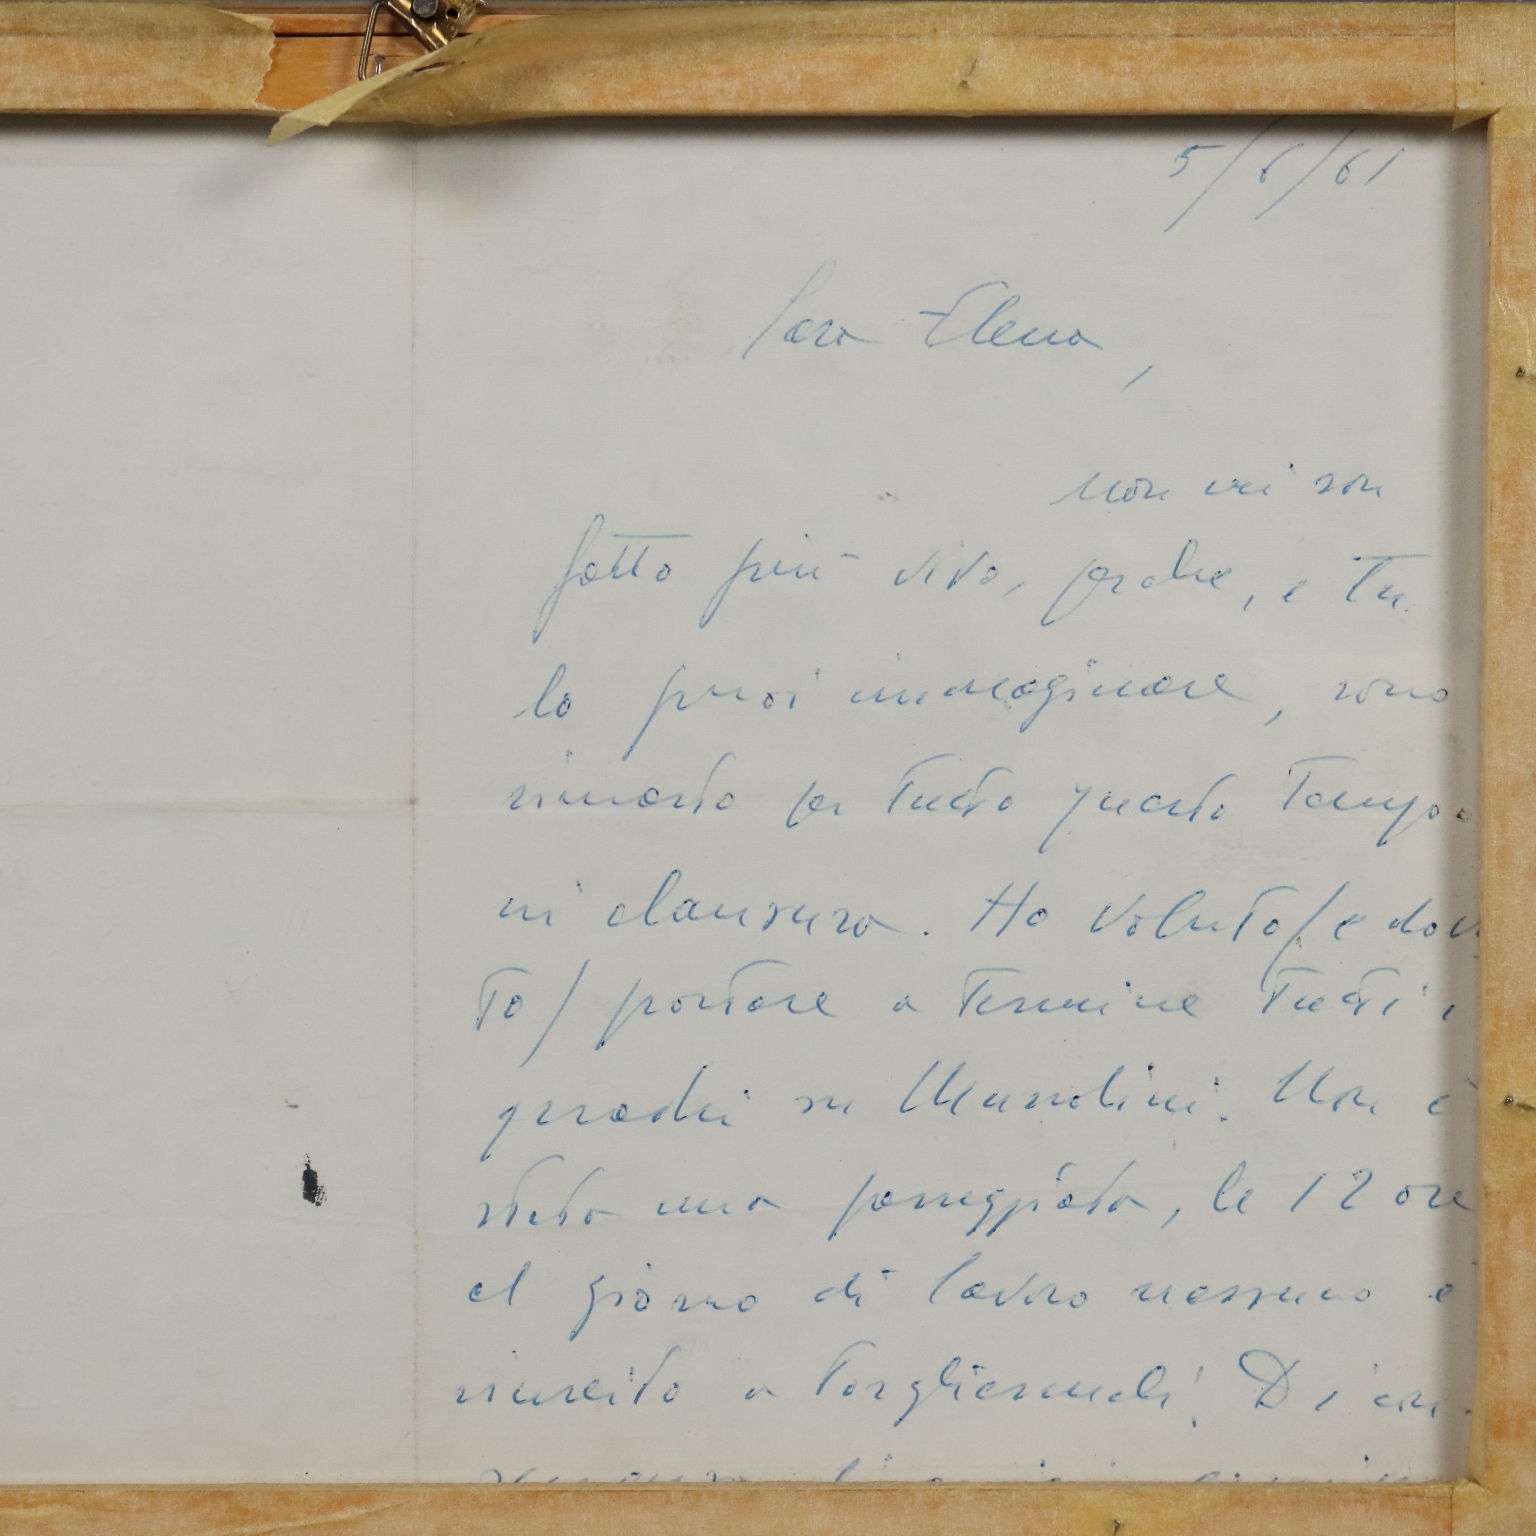 5/6/61
Cara Elena,
non mi son
fatto più vivo, perché, e tu
lo puoi immaginare, sono
rimasto per tutto questo tempo
in clausura. Ho voluto/e dovu
to/ portare a termine tutti i
quadri su Mussolini. Non è
stata una passeggiata, le 12 ore
al giorno di lavoro nessuno è
riuscito a togliermeli. Di con